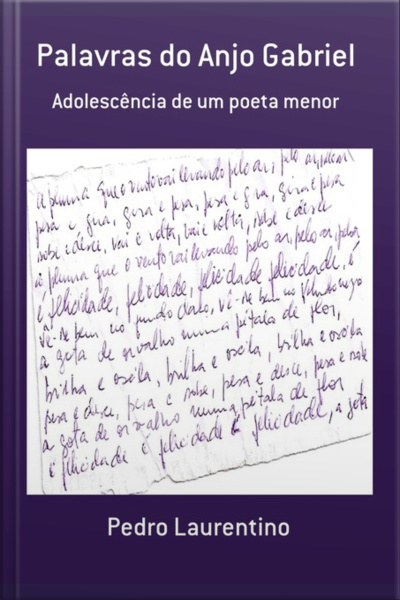 Palavras do Anjo Gabriel
Adolescência de um poeta menor
a pluma que o vento vai levando pelo ar, pelo ar, pelo ar
pesa e gira, gira e pesa, pesa e gira, gira e pesa
sobe e desce, vai e volta, vai e volta, sobe e desce
a pluma que o vento vai levando pelo ar, pelo ar, pelo ar
é felicidade, felicidade, felicidade felicidade, é
vê-se bem no fundo
a gota de orvalho numa pétala de flor,
brilha e oscila, brilha e oscila, brilha e oscila
pesa e desce, pesa e sobe, pesa e desce, pesa e
a gota de orvalho numa pétala de flor
é felicidade é felicidade é felicidade, a gota
Pedro Laurentino